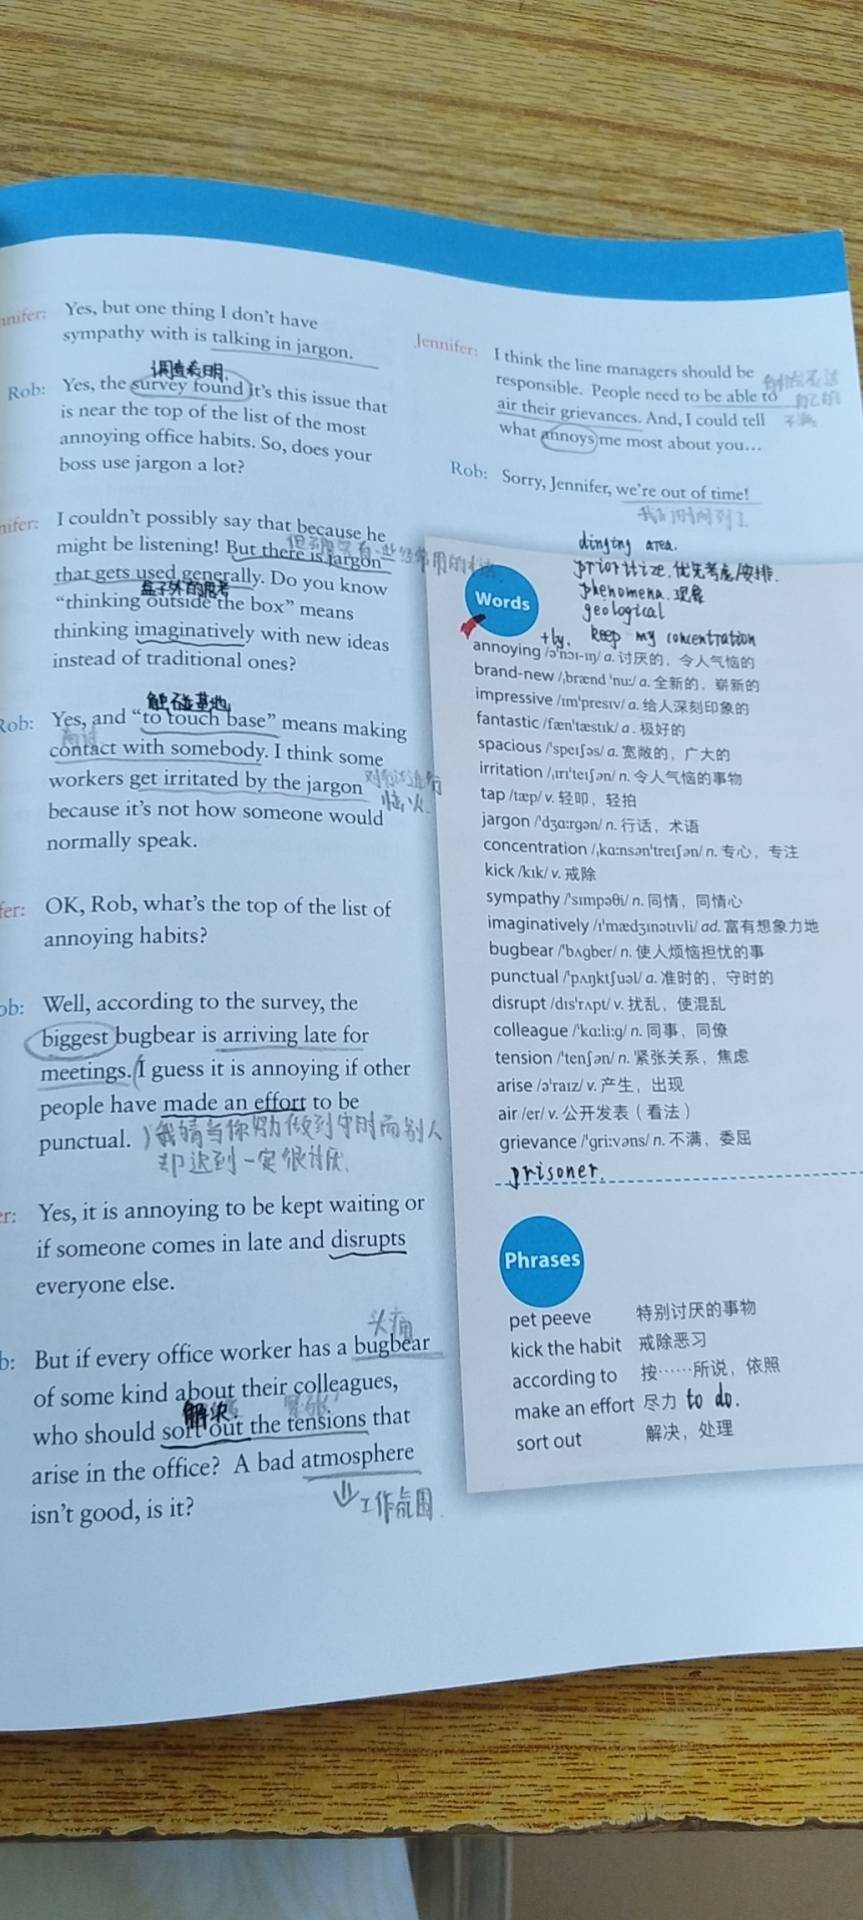 Yes, but one thing I don't have
sympathy with is talking in jargon.
调查表明.
Rob: Yes, the survey found it's this issue that
is near the top of the list of the most
annoying office habits. So, does your
boss use jargon a lot?
nifer: I couldn't possibly say that because he
might be listening! But there is jargon
that gets used generally. Do you know
盒子外的思考
“thinking outside the box” means
thinking imaginatively with new ideas
instead of traditional ones?
触碰基地
Rob: Yes, and “to touch base” means making
contact with somebody. I think some
workers get irritated by the jargon
恼火.
because it's not how someone would
normally speak.
fer: OK, Rob, what's the top of the list of
annoying habits?
ob: Well, according to the survey, the
biggest bugbear is arriving late for
meetings. I guess it is annoying if other
people have made an effort to be
punctual.
我猜当你努力做到守时而别人
却迟到一定很讨厌.
er: Yes, it is annoying to be kept waiting or
if someone comes in late and disrupts
everyone else.
头痛
b: But if every office worker has a bugbear
of some kind about their colleagues,
解决
who should sort out the tensions that
arise in the office? A bad atmosphere
工作氛围
isn't good, is it?
Jennifer: I think the line managers should be
responsible. People need to be able to
air their grievances. And, I could tell
不满
what annoys me most about you…
Rob: Sorry, Jennifer, we're out of time!
我们时间到了
dinging area.
prioritize.优先考虑/安排.
phenomena.现象
geological
Words
+by. keep my concentration
annoying /ə'nɔɪ-ɪŋ/ a. 讨厌的，令人气恼的
brand-new /ˌbrænd 'nuː/ a. 全新的，崭新的
impressive /ɪm'presɪv/ a. 给人深刻印象的
fantastic /fæn'tæstɪk/ a. 极好的
spacious /'speɪʃəs/ a. 宽敞的，广大的
irritation /ˌɪrɪ'teɪʃən/ n. 令人气恼的事物
tap /tæp/ v. 轻叩，轻拍
jargon /'dʒɑːrgən/ n. 行话，术语
concentration /ˌkɑːnsən'treɪʃən/ n. 专心，专注
kick /kɪk/ v. 戒除
sympathy /'sɪmpəθi/ n. 同情，同情心
imaginatively /ɪ'mædʒɪnətɪvli/ ad. 富有想象力地
bugbear /'bʌgber/ n. 使人烦恼担忧的事
punctual /'pʌŋktʃuəl/ a. 准时的，守时的
disrupt /dɪs'rʌpt/ v. 扰乱，使混乱
colleague /'kɑːliːg/ n. 同事，同僚
tension /'tenʃən/ n. 紧张关系，焦虑
arise /ə'raɪz/ v. 产生，出现
air /er/ v. 公开发表（看法）
grievance /'griːvəns/ n. 不满，委屈
prisoner.
Phrases
pet peeve 特别讨厌的事物
kick the habit 戒除恶习
according to 按……所说，依照
make an effort 尽力 to do.
sort out 解决，处理